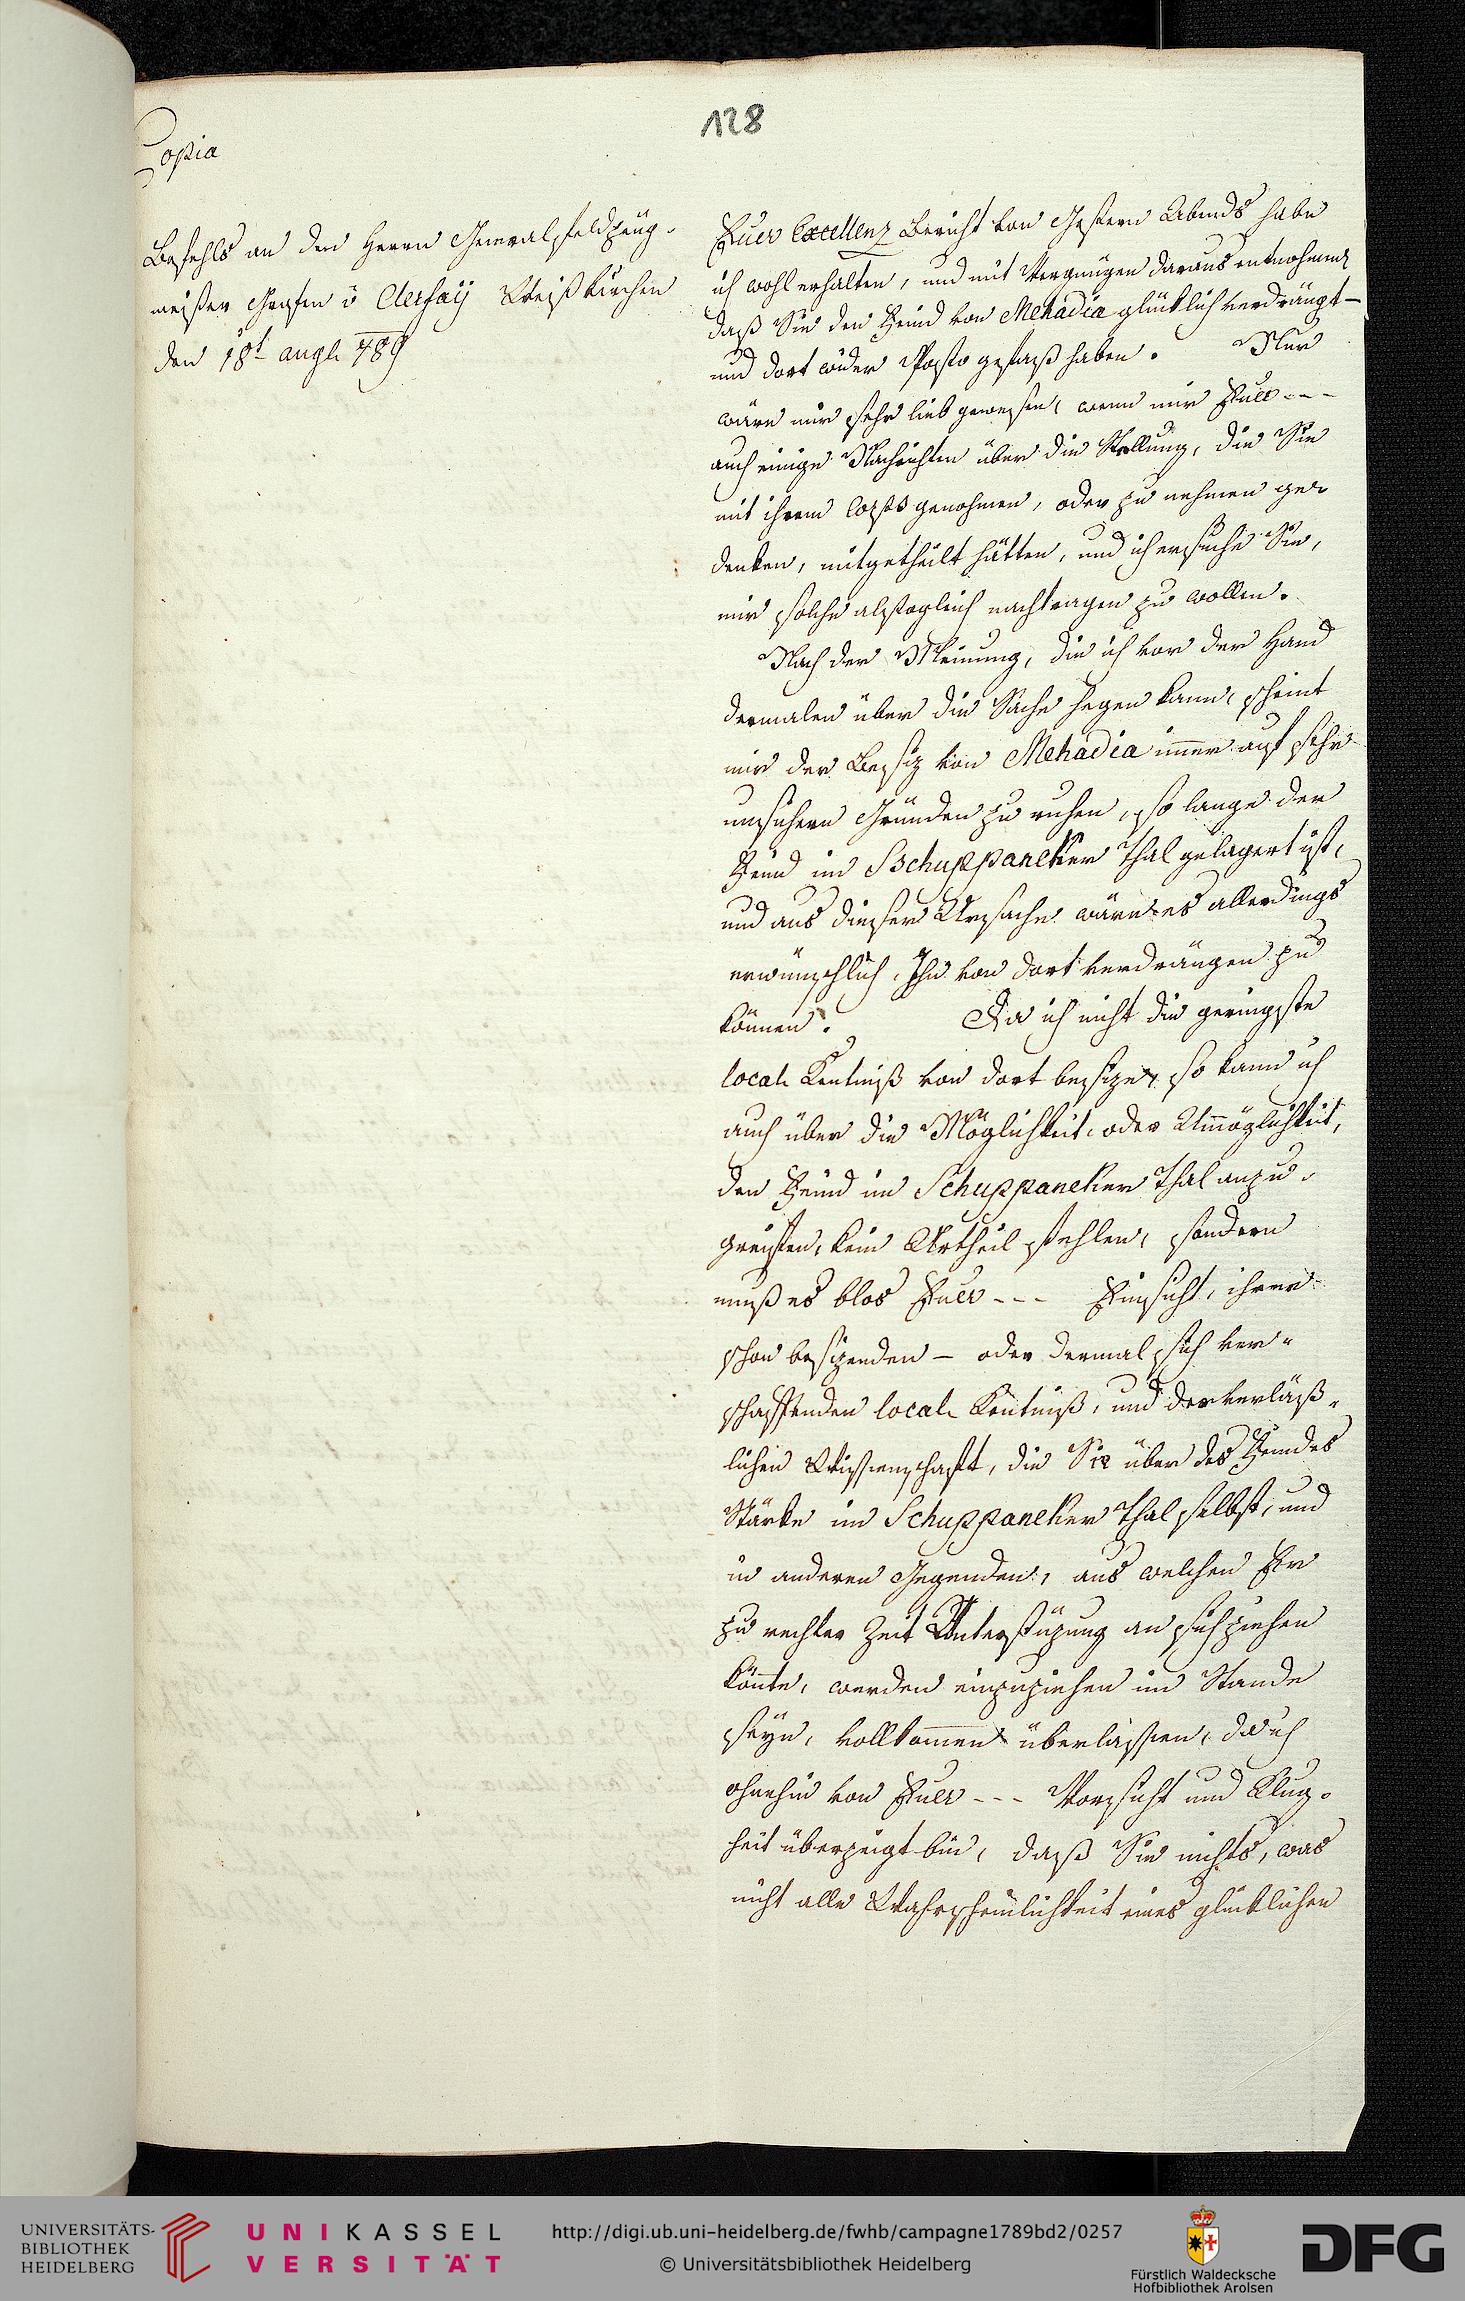 128
Copia
Befehls an den Herrn Generalfeldzeug-
meister Grafen v Clerfaÿ Weißkirchen
den 18t augl 789
Euer Excellenz Bericht von Gestern Abends habe
ich wohl erhalten, und mit Vergnügen daraus entnohmen,
daß Sie den Feind von Mehadia glücklich verdrängt –
und dort wieder Posto gefaßt haben. Nur
wäre mir sehr lieb gewesen, wenn mir Euer ---
auch einige Nachrichten über die Stellung, die Sie
mit ihrem Corps genohmen, oder zu nehmen ge-
denken, mitgetheilt hätten, und ich ersuche Sie,
mir solche alsogleich nachtragen zu wollen.
Nach der Meinung, die ich vor der Hand
dermalen über die Sache hegen kann, scheint
mir der Besiz von Mehadia im̄er auf sehr
unsichern Gründen zu ruhen, so lange der
Feind im Schuppaneker Thal gelagert ist,
und aus dieser Ursache wäre es allerdings
erwünschlich, Ihn von dort verdrängen zu
können. Da ich nicht die geringste
local Kentniß von dort besize, so kann ich
auch über die Möglichkeit oder Unmöglichkeit,
den Feind im Schuppaneker Thal anzu-
greifen, kein Urtheil fehlen, sondern
muß es blos Euer --- Einsicht, ihrer
schon besizenden – oder dermal sich ver-
schaffenden local Kentniß, und der verläß-
lichen Wissenschaft, die Sie über des Feindes
Stärke im Schuppaneker Thal selbst, und
in anderen Gegenden, aus welchen Er
zu rechter Zeit Unterstüzung an sich ziehen
könte, werden einzuziehen im Stande
seyn, vollkom̄en überlassen, da ich
ohnehin von Euer --- Vorsicht und Klug-
heit überzeigt bin, daß Sie nichts, was
nicht alle Wahrscheinlichkeit eines glücklichen
UNIVERSITÄTS-
BIBLIOTHEK
HEIDELBERG
UNIKASSEL
VERSITÄT
http://digi.ub.uni-heidelberg.de/fwhb/campagne1789bd2/0257
© Universitätsbibliothek Heidelberg
Fürstlich Waldecksche
Hofbibliothek Arolsen
DFG